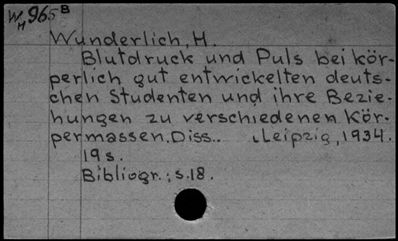 W 965 B
H
Wunderlich, H.
Blutdruck und Puls bei kör-
perlich gut entwickelten deuts-
chen Studenten und ihre Bezie-
hungen zu verschiedenen Kör-
permassen. Diss.. Leipzig, 1934.
19 s.
Bibliogr.: s.18.